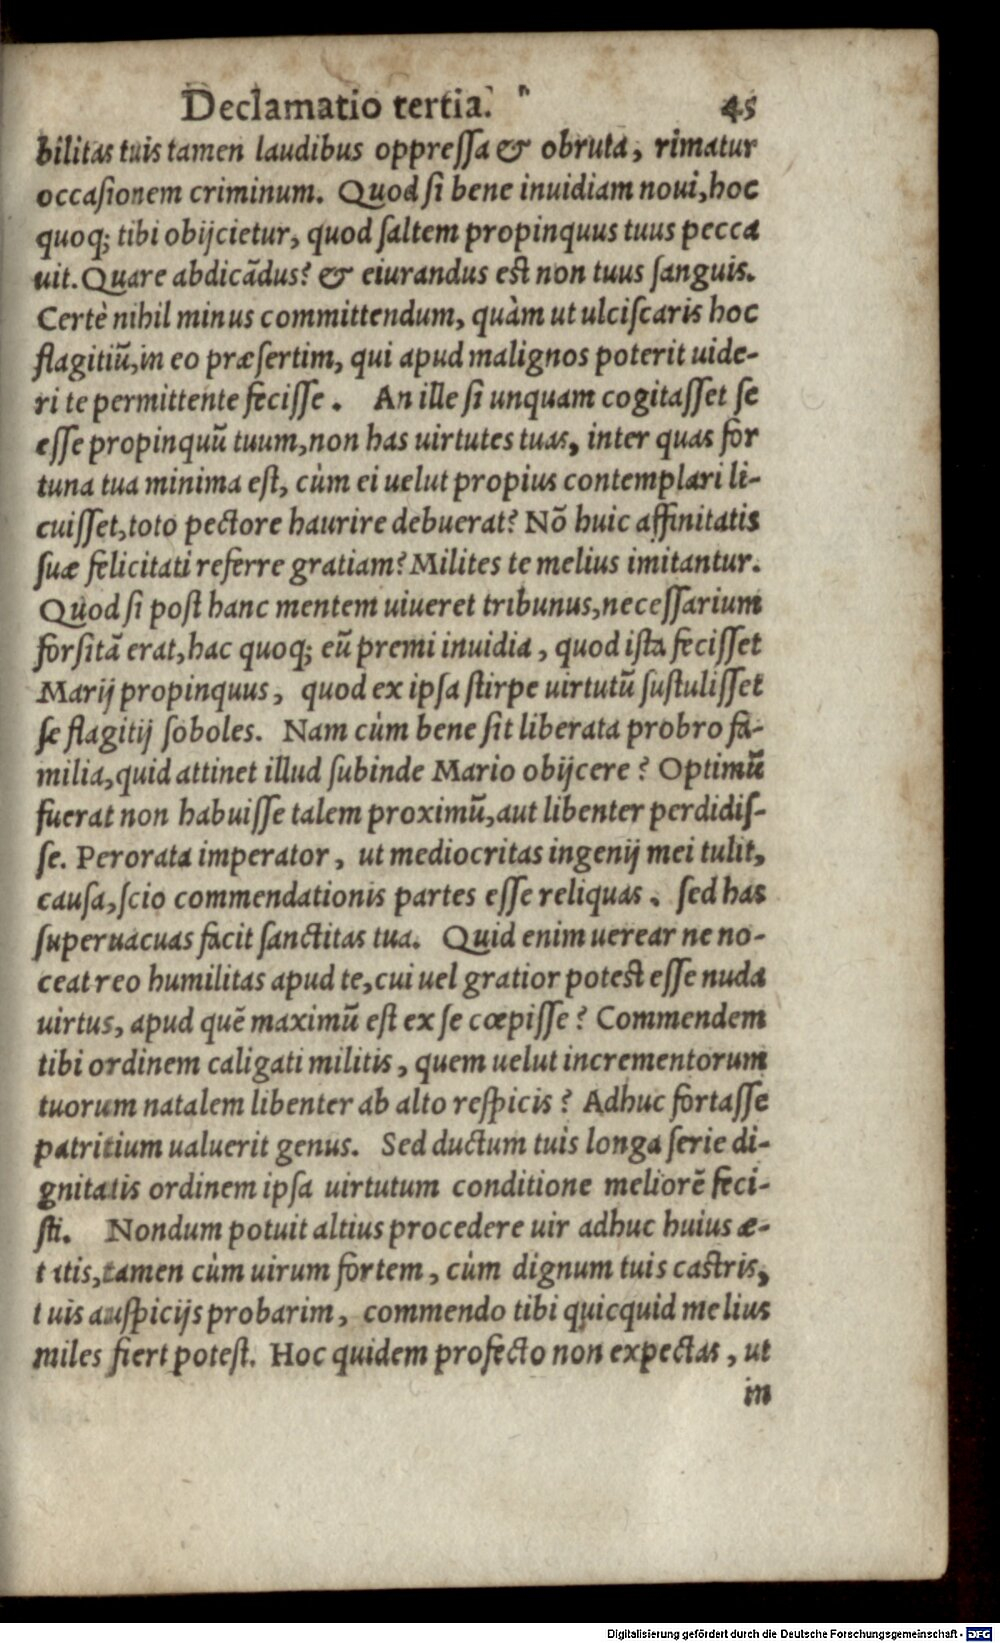 Declamatio tertia. 45
bilitas tuis tamen laudibus oppreſſa & obruta, rimatur
occaſionem criminum. Quod ſi bene inuidiam noui, hoc
quoq; tibi obijcietur, quod ſaltem propinquus tuus pecca
uit. Quare abdicãdus? & eiurandus est non tuus ſanguis.
Certè nihil minus committendum, quàm ut ulciſcaris hoc
flagitiũ, in eo præſertim, qui apud malignos poterit uide-
ri te permittente feciſſe. An ille ſi unquam cogitaſſet ſe
eſſe propinquũ tuum, non has uirtutes tuas, inter quas for
tuna tua minima eſt, cùm ei uelut propius contemplari li-
cuiſſet, toto pectore haurire debuerat? Nõ huic affinitatis
ſuæ felicitati referre gratiam? Milites te melius imitantur.
Quod ſi poſt hanc mentem uiueret tribunus, neceſſarium
forſitã erat, hac quoq; eũ premi inuidia, quod iſta feciſſet
Marij propinquus, quod ex ipſa ſtirpe uirtutũ ſuſtuliſſet
ſe flagitij ſoboles. Nam cùm bene ſit liberata probro fa-
milia, quid attinet illud ſubinde Mario obijcere? Optimũ
fuerat non habuiſſe talem proximũ, aut libenter perdidiſ-
ſe. Perorata imperator, ut mediocritas ingenij mei tulit,
cauſa, ſcio commendationis partes eſſe reliquas. ſed has
ſuperuacuas facit ſanctitas tua. Quid enim uerear ne no-
ceat reo humilitas apud te, cui uel gratior potest eſſe nuda
uirtus, apud quẽ maximũ eſt ex ſe cœpiſſe? Commendem
tibi ordinem caligati militis, quem uelut incrementorum
tuorum natalem libenter ab alto reſpicis? Adhuc fortaſſe
patritium ualuerit genus. Sed ductum tuis longa ſerie di-
gnitatis ordinem ipſa uirtutum conditione meliorẽ feci-
ſti. Nondum potuit altius procedere uir adhuc huius æ-
tatis, tamen cùm uirum fortem, cùm dignum tuis castris,
tuis auſpicijs probarim, commendo tibi quicquid melius
miles fiert poteſt. Hoc quidem profecto non expectas, ut
in
Digitalisierung gefördert durch die Deutsche Forschungsgemeinschaft - DFG